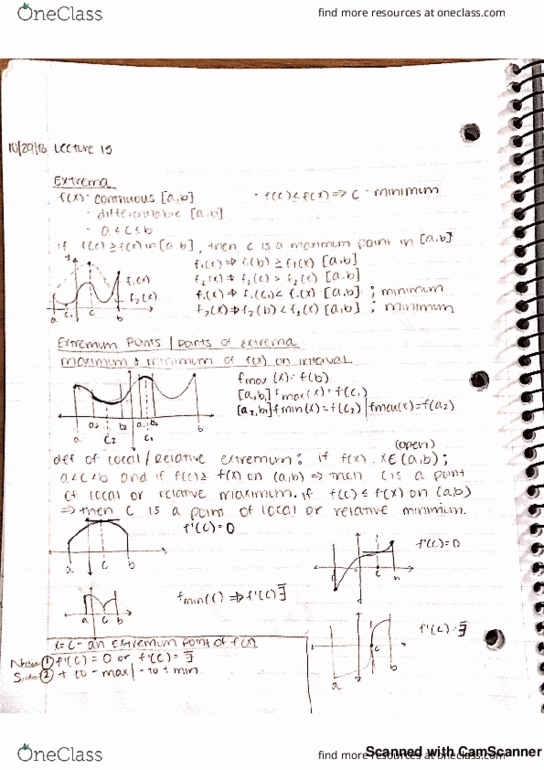 OneClass
find more resources at oneclass.com
10/29/18 Lecture 15
Extrema
f(x)- continuous [a,b] - f(c)≤f(x) ⇒ c - minimum
- differentiable [a,b]
- a<c≤b
if f(c)≥f(x) in [a,b], then c is a maximum point in [a,b]
f₁(x) ⇒ f₁(b) ≥ f₁(x) [a,b]
f₂(x) ⇒ f₂(c) > f₂(x) [a,b]
f₁(x) ⇒ f₁(c₁)< f₁(x) [a,b] ; minimum
f₂(x) ⇒ f₂(b) < f₂(x) [a,b] ; minimum
y
f₁(x)
f₂(x)
a c₁ c b
Extremum Points / points of extrema
maximum & minimum of f(x) on interval
fmax(x) = f(b)
fmax(x) = f(c₁)
fmin(x) = f(c₂) | fmax(x) = f(a₂)
a a₂ b₂ a₁ b₁ b
c₂ c₁
(open)
def of local/relative extremum: if f(x), x∈(a,b);
a<c<b and if f(c)≥ f(x) on (a,b) ⇒ then c is a point
of local or relative maximum. if f(c) ≤ f(x) on (a,b)
⇒ then c is a point of local or relative minimum.
f'(c)=0
a c b
f'(c)=0
a c b
fmin(c) ⇒ f'(c) ∄
f'(c) ∄
a b
x=c - an extremum point of f(x)
① f'(c) = 0 or f'(c) = ∄
② + to - max | - to + min
OneClass
find more resources at oneclass.com
Scanned with CamScanner